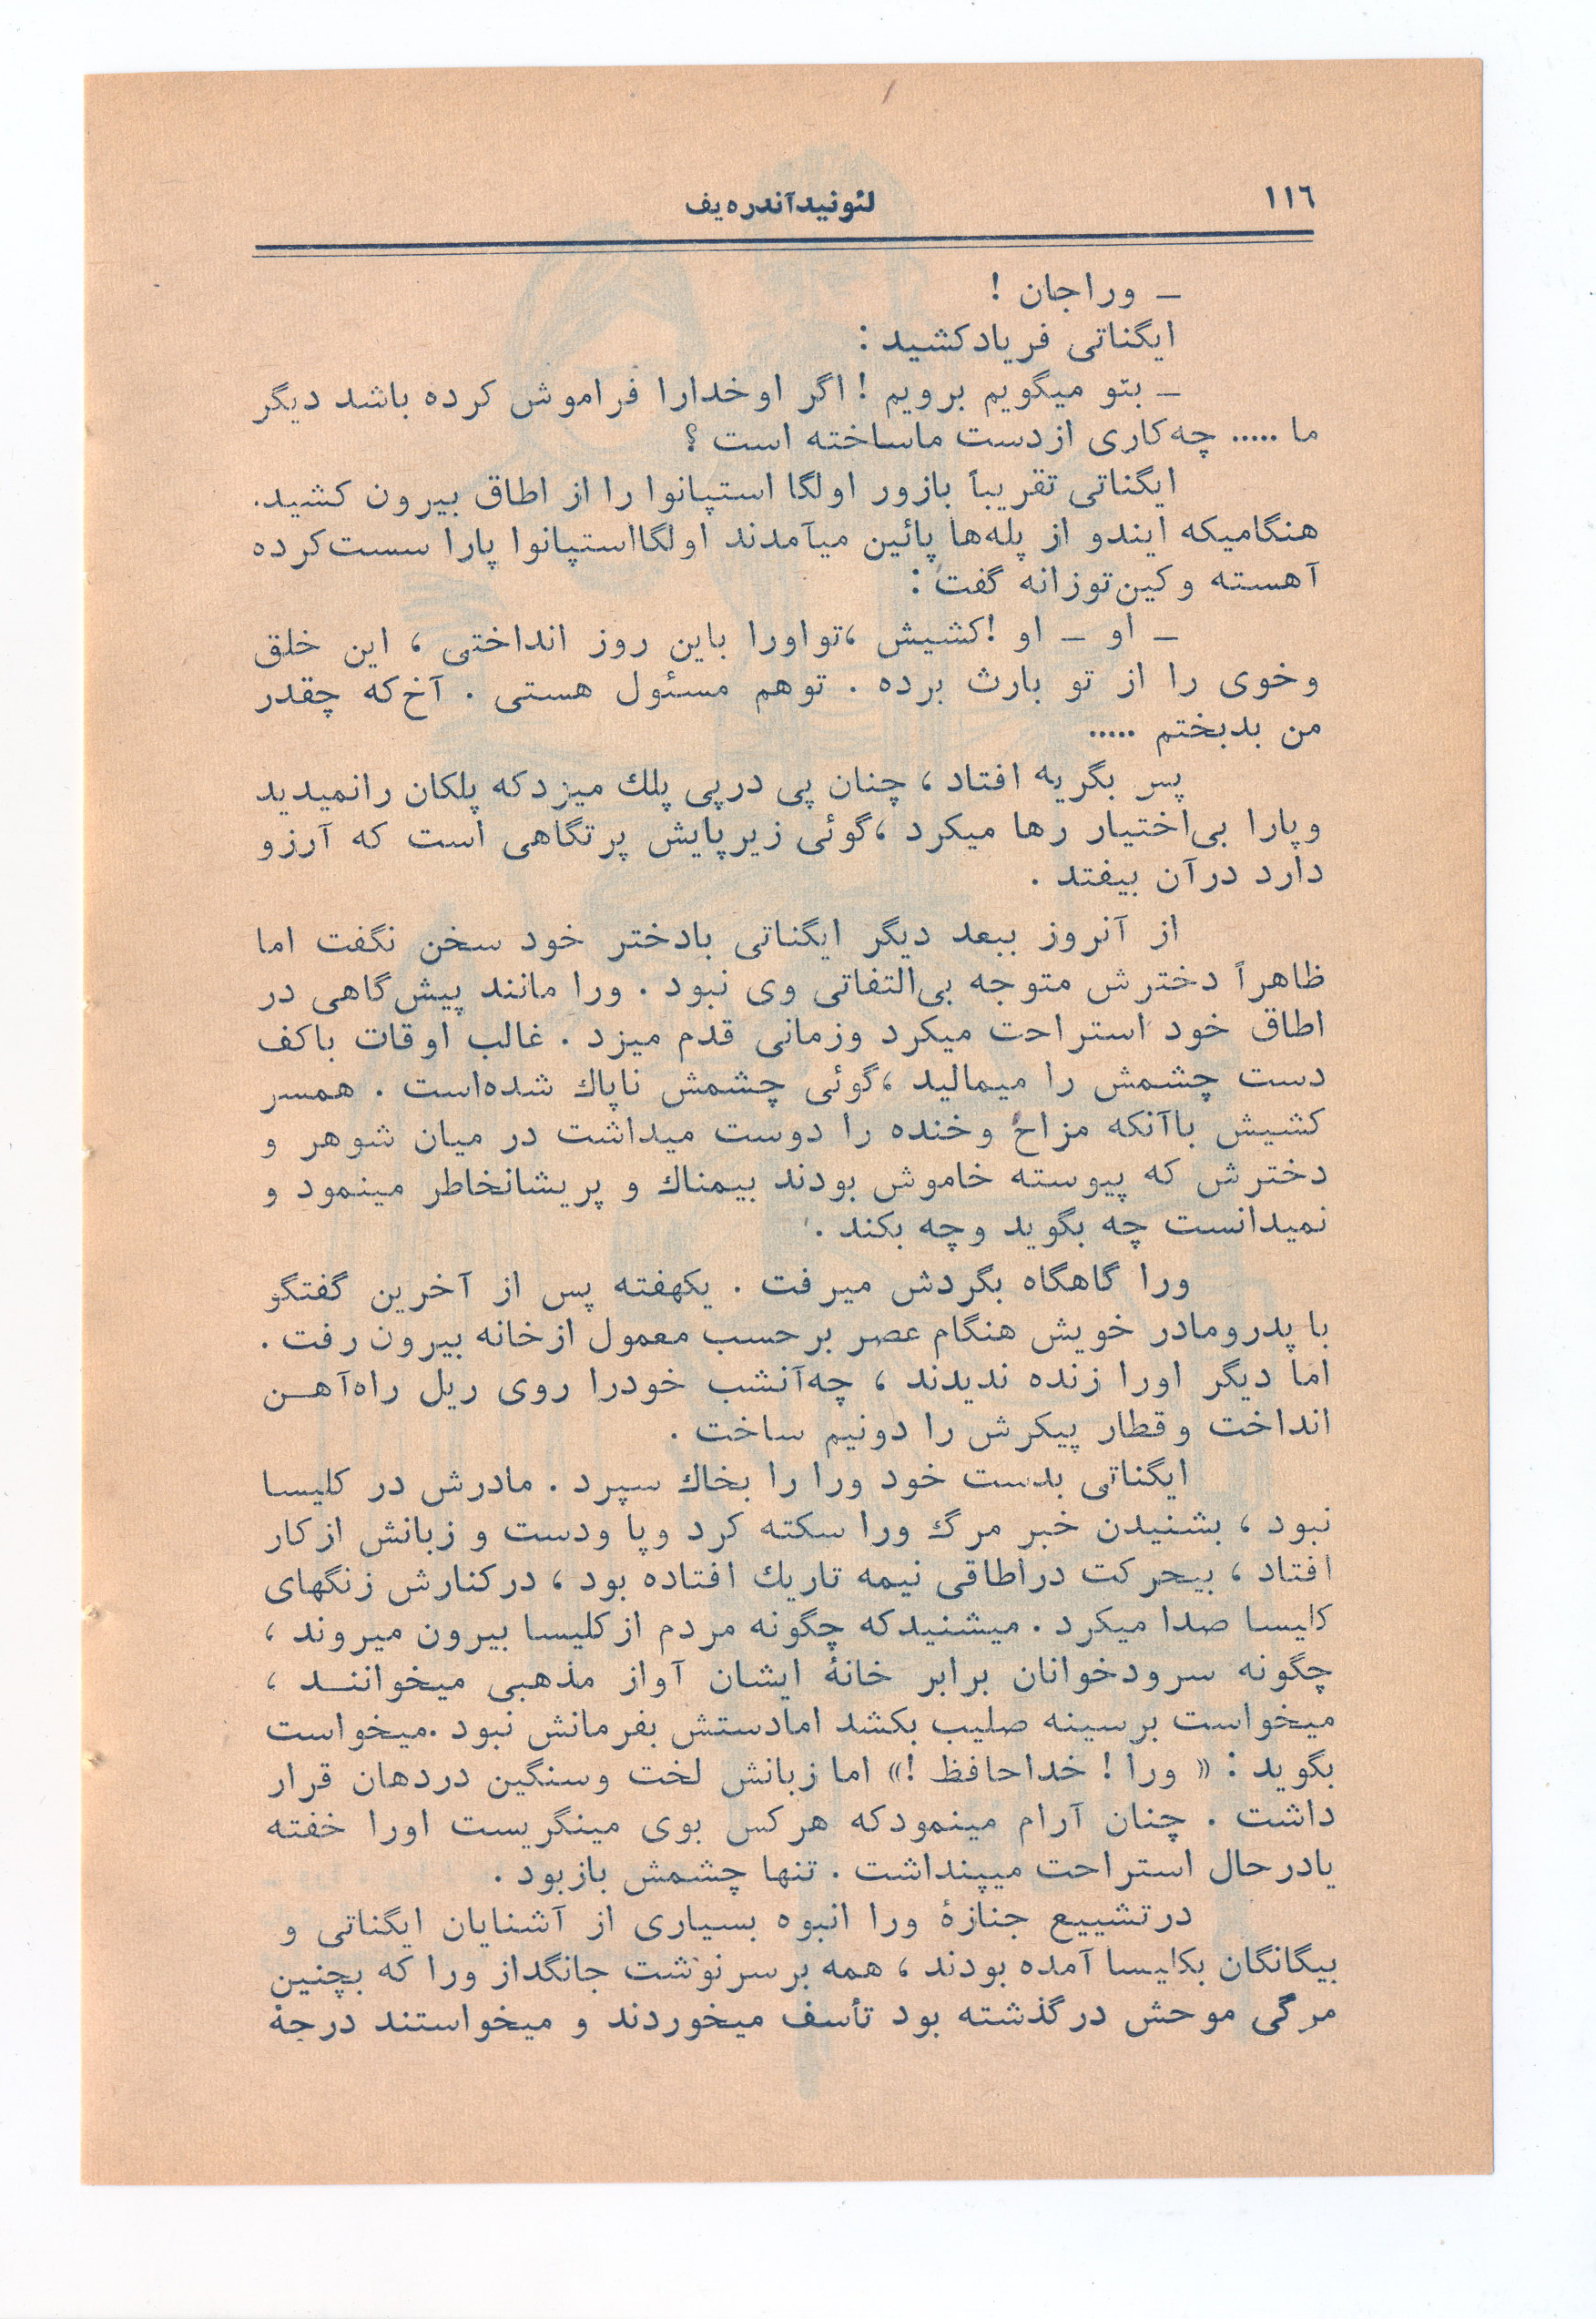 ١١٦
لئونیدآندره‌یف
ـ وراجان !
ایگناتی فریادکشید :
ـ بتو میگویم برویم ! اگر اوخدارا فراموش کرده باشد دیگر
ما ..... چه‌کاری ازدست ماساخته است ؟
ایگناتی تقریباً بازور اولگا استپانوا را از اطاق بیرون کشید.
هنگامیکه ایندو از پله‌ها پائین میآمدند اولگااستپانوا پارا سست‌کرده
آهسته وکین‌توزانه گفت :
ـ او ـ او !کشیش ،تواورا باین روز انداختی ، این خلق
وخوی را از تو بارث برده . توهم مسئول هستی . آخ‌که چقدر
من بدبختم .....
پس بگریه افتاد ، چنان پی درپی پلك میزدکه پلکان رانمیدید
وپارا بی‌اختیار رها میکرد ،گوئی زیرپایش پرتگاهی است که آرزو
دارد درآن بیفتد .
از آنروز ببعد دیگر ایگناتی بادختر خود سخن نگفت اما
ظاهراً دخترش متوجه بی‌التفاتی وی نبود . ورا مانند پیش‌گاهی در
اطاق خود استراحت میکرد وزمانی قدم میزد . غالب اوقات باکف
دست چشمش را میمالید ،گوئی چشمش ناپاك شده‌است . همسر
کشیش باآنکه مزاح وخنده را دوست میداشت در میان شوهر و
دخترش که پیوسته خاموش بودند بیمناك و پریشانخاطر مینمود و
نمیدانست چه بگوید وچه بکند .
ورا گاهگاه بگردش میرفت . یکهفته پس از آخرین گفتگو
با پدرومادر خویش هنگام عصر برحسب معمول ازخانه بیرون رفت .
اما دیگر اورا زنده ندیدند ، چه‌آنشب خودرا روی ریل راه‌آهـن
انداخت وقطار پیکرش را دونیم ساخت .
ایگناتی بدست خود ورا را بخاك سپرد . مادرش در کلیسا
نبود ، بشنیدن خبر مرگ ورا سکته کرد وپا ودست و زبانش ازکار
افتاد ، بیحرکت دراطاقی نیمه تاریك افتاده بود ، درکنارش زنگهای
کلیسا صدا میکرد . میشنیدکه چگونه مردم ازکلیسا بیرون میروند ،
چگونه سرودخوانان برابر خانهٔ ایشان آواز مذهبی میخواننـد ،
میخواست برسینه صلیب بکشد امادستش بفرمانش نبود .میخواست
بگوید : « ورا ! خداحافظ !» اما زبانش لخت وسنگین دردهان قرار
داشت . چنان آرام مینمودکه هرکس بوی مینگریست اورا خفته
یادرحال استراحت میپنداشت . تنها چشمش بازبود .
درتشییع جنازهٔ ورا انبوه بسیاری از آشنایان ایگناتی و
بیگانگان بکلیسا آمده بودند ، همه برسرنوشت جانگداز ورا که بچنین
مرگی موحش درگذشته بود تأسف میخوردند و میخواستند درجهٔ